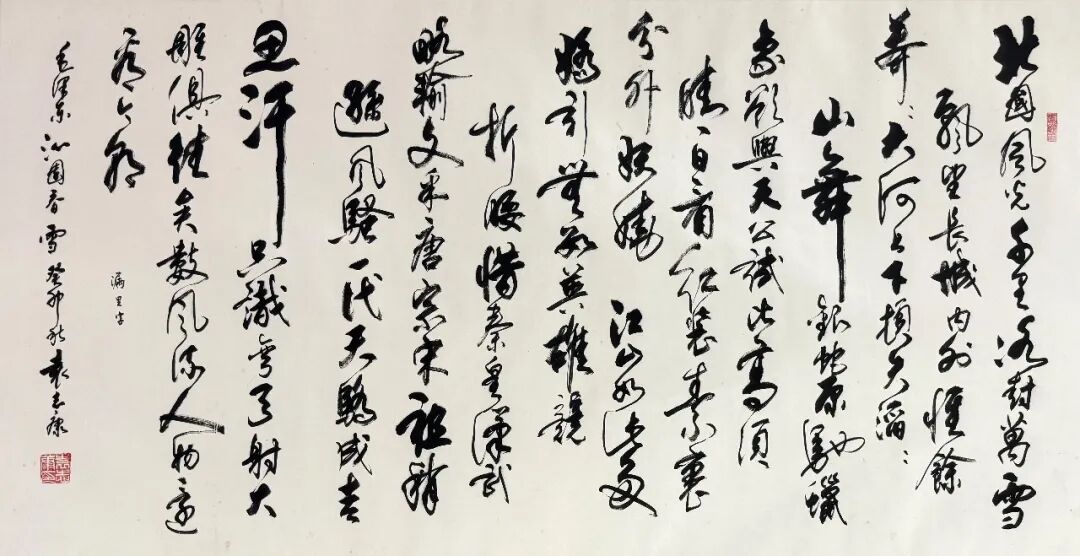 北國風光千里冰封萬雪
飄望長城內外惟餘
莽〻大河上下頓失滔〻
山舞銀蛇原馳蠟
象欲與天公試比高須
晴日看紅裝素裹
分外妖嬈江山如此多
嬌引無數英雄競
折腰惜秦皇漢武
略輸文采唐宗宋祖稍
遜風騷一代天驕成吉
思汗只識彎弓射大
雕俱往矣數風流人物還
看今朝
漏里字
毛澤東沁園春雪癸卯秋袁志康